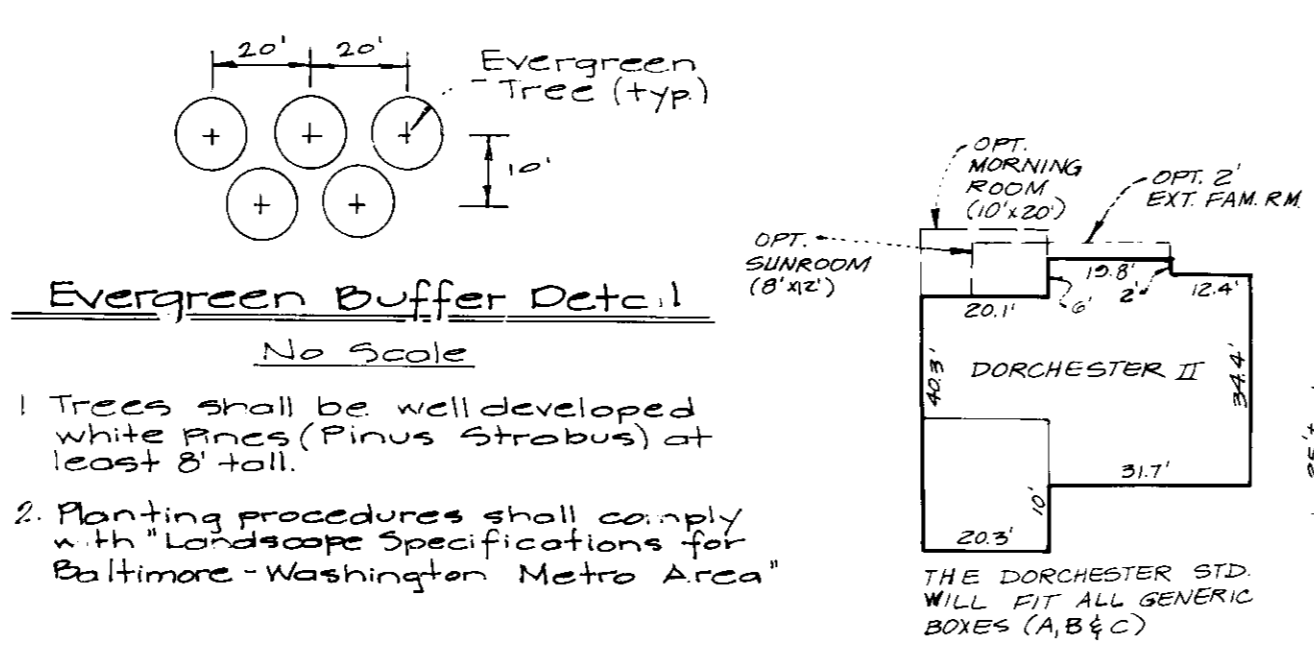 20' 20'
Evergreen
Tree (typ.)
10'
Evergreen Buffer Detail
No Scale
1 Trees shall be well developed
white Pines (Pinus Strobus) at
least 8' tall.
2. Planting procedures shall comply
with "Landscape Specifications for
Baltimore-Washington Metro Area"
OPT.
MORNING
ROOM
(10'x20')
OPT. 2'
EXT. FAM. RM.
OPT.
SUNROOM
(8'x12')
19.8'
2'
12.4'
20.1'
6'
40.3'
DORCHESTER II
34.4'
31.7'
10'
20.3'
THE DORCHESTER STD.
WILL FIT ALL GENERIC
BOXES (A, B & C)